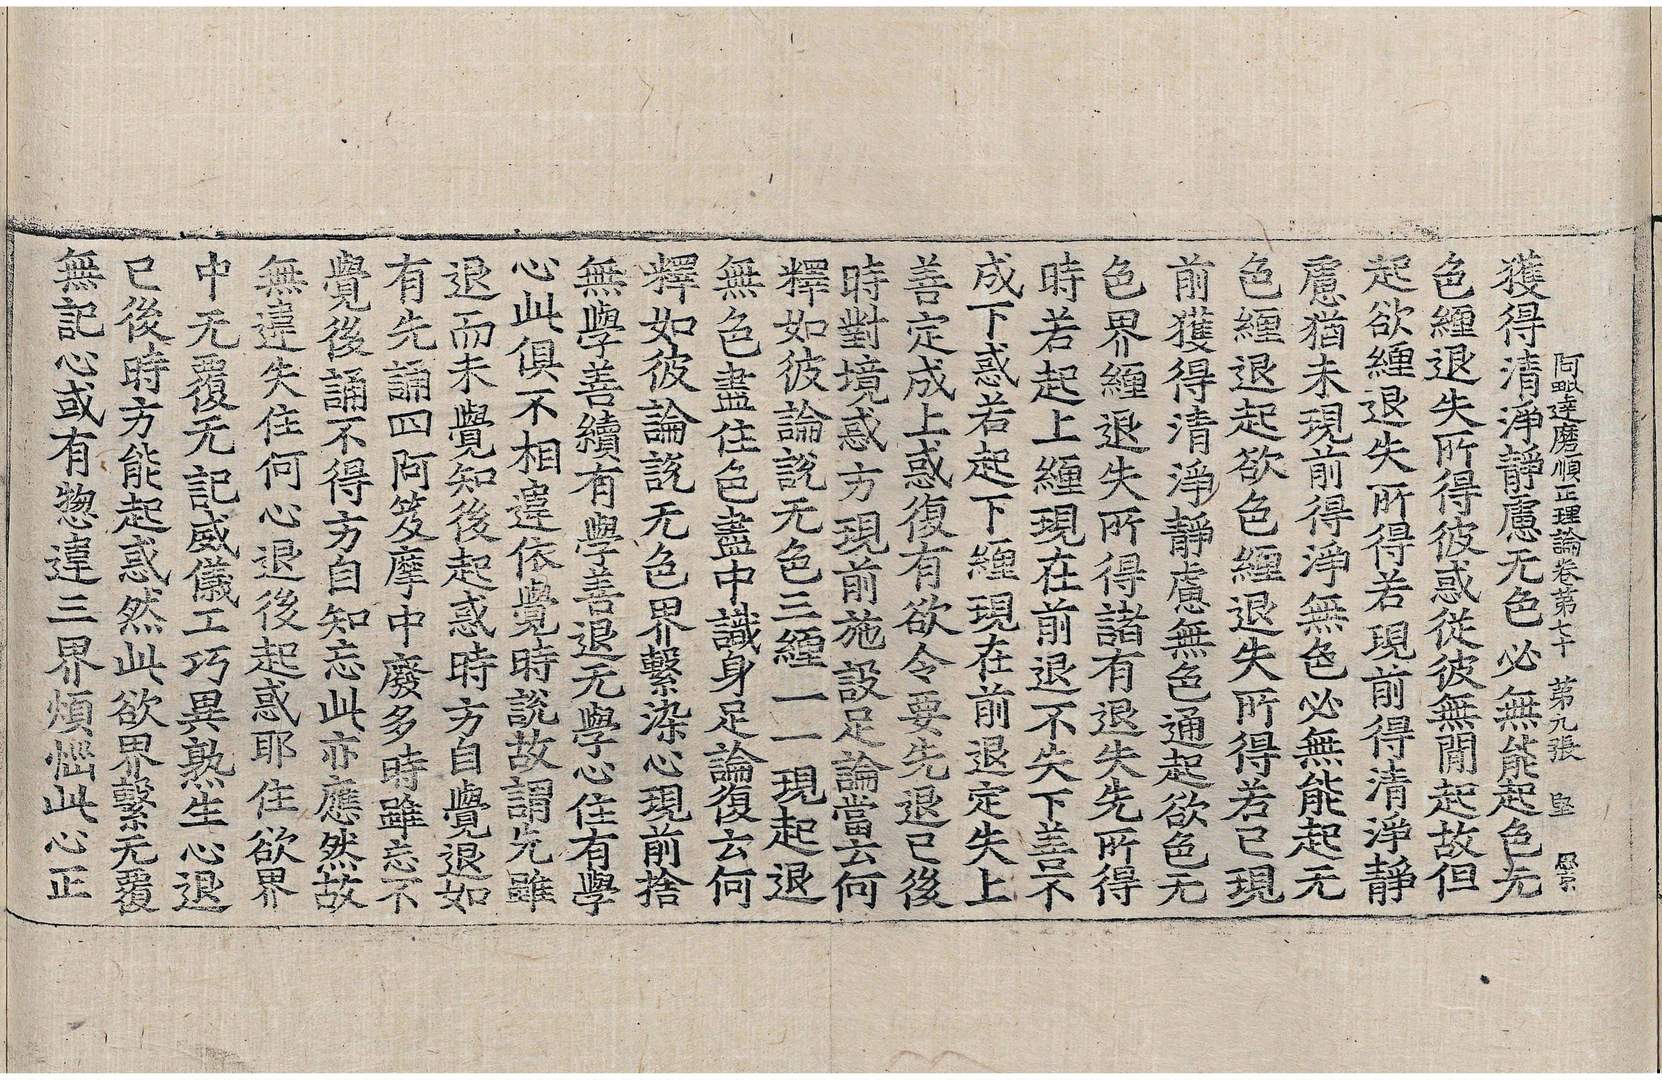 阿毗達磨順正理論卷第七十 第九張 堅
獲得清淨靜慮无色必無能起色无
色纏退失所得彼惑從彼無閒起故但
起欲纏退失所得若現前得清淨靜
慮猶未現前得淨無色必無能起无
色纏退起欲色纏退失所得若已現
前獲得清淨靜慮無色通起欲色无
色界纏退失所得諸有退失先所得
時若起上纏現在前退不失下善不
成下惑若起下纏現在前退定失上
善定成上惑復有欲令要先退已後
時對境惑方現前施設足論當云何
釋如彼論說无色三纏一一現起退
無色盡住色盡中識身足論復云何
釋如彼論說无色界繫染心現前捨
無學善續有學善退无學心住有學
心此俱不相違依覺時說故謂先雖
退而未覺知後起惑時方自覺退如
有先誦四阿笈摩中廢多時雖忘不
覺後誦不得方自知忘此亦應然故
無違失住何心退後起惑耶住欲界
中无覆无記威儀工巧異熟生心退
已後時方能起惑然此欲界繫无覆
無記心或有惣違三界煩惱此心正